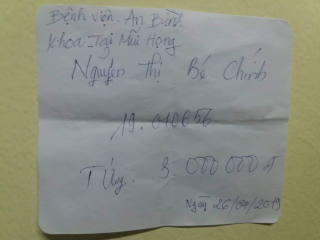 Bệnh viện. An Bình
Khoa Tai Mũi Họng
Nguyễn Thị Bé Chính
19.010656
T Ứng. 3.000 000 đ
Ngày 26/04/2019